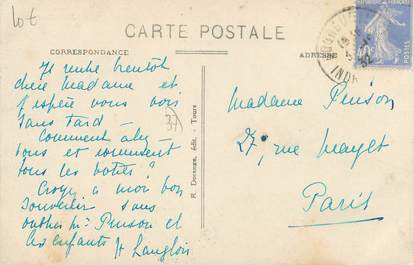 Lot
CARTE POSTALE
CORRESPONDANCE
ADRESSE
Je rentre bientôt
chère Madame et
j'espère vous voir
sans tard —
Comment allez-
vous et comment
tous les vôtres ?
Croyez à mon bon
souvenir sans
oublier Mr Pinson et
les enfants H Langlois
37
R. Dorange, édit. - Tours
Madame Pinson
27, rue Mayet
Paris